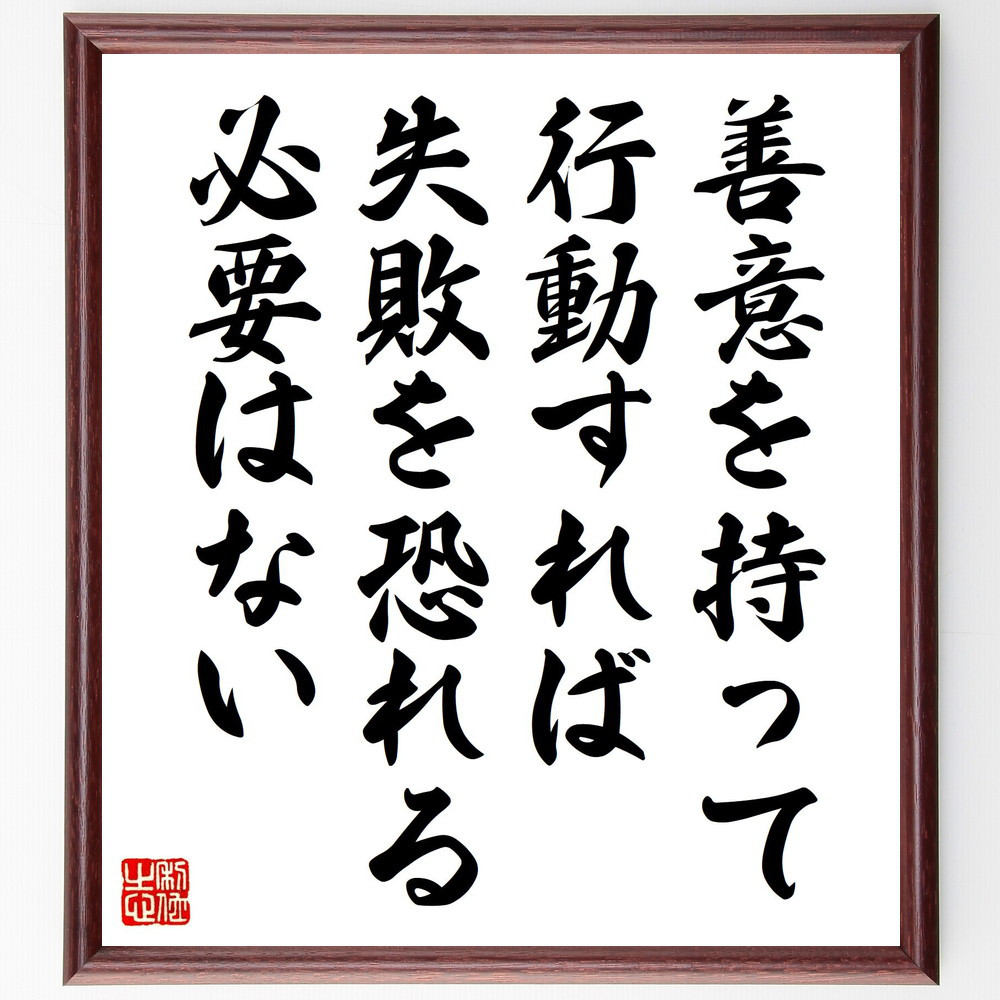 善意を持って
行動すれば
失敗を恐れる
必要はない